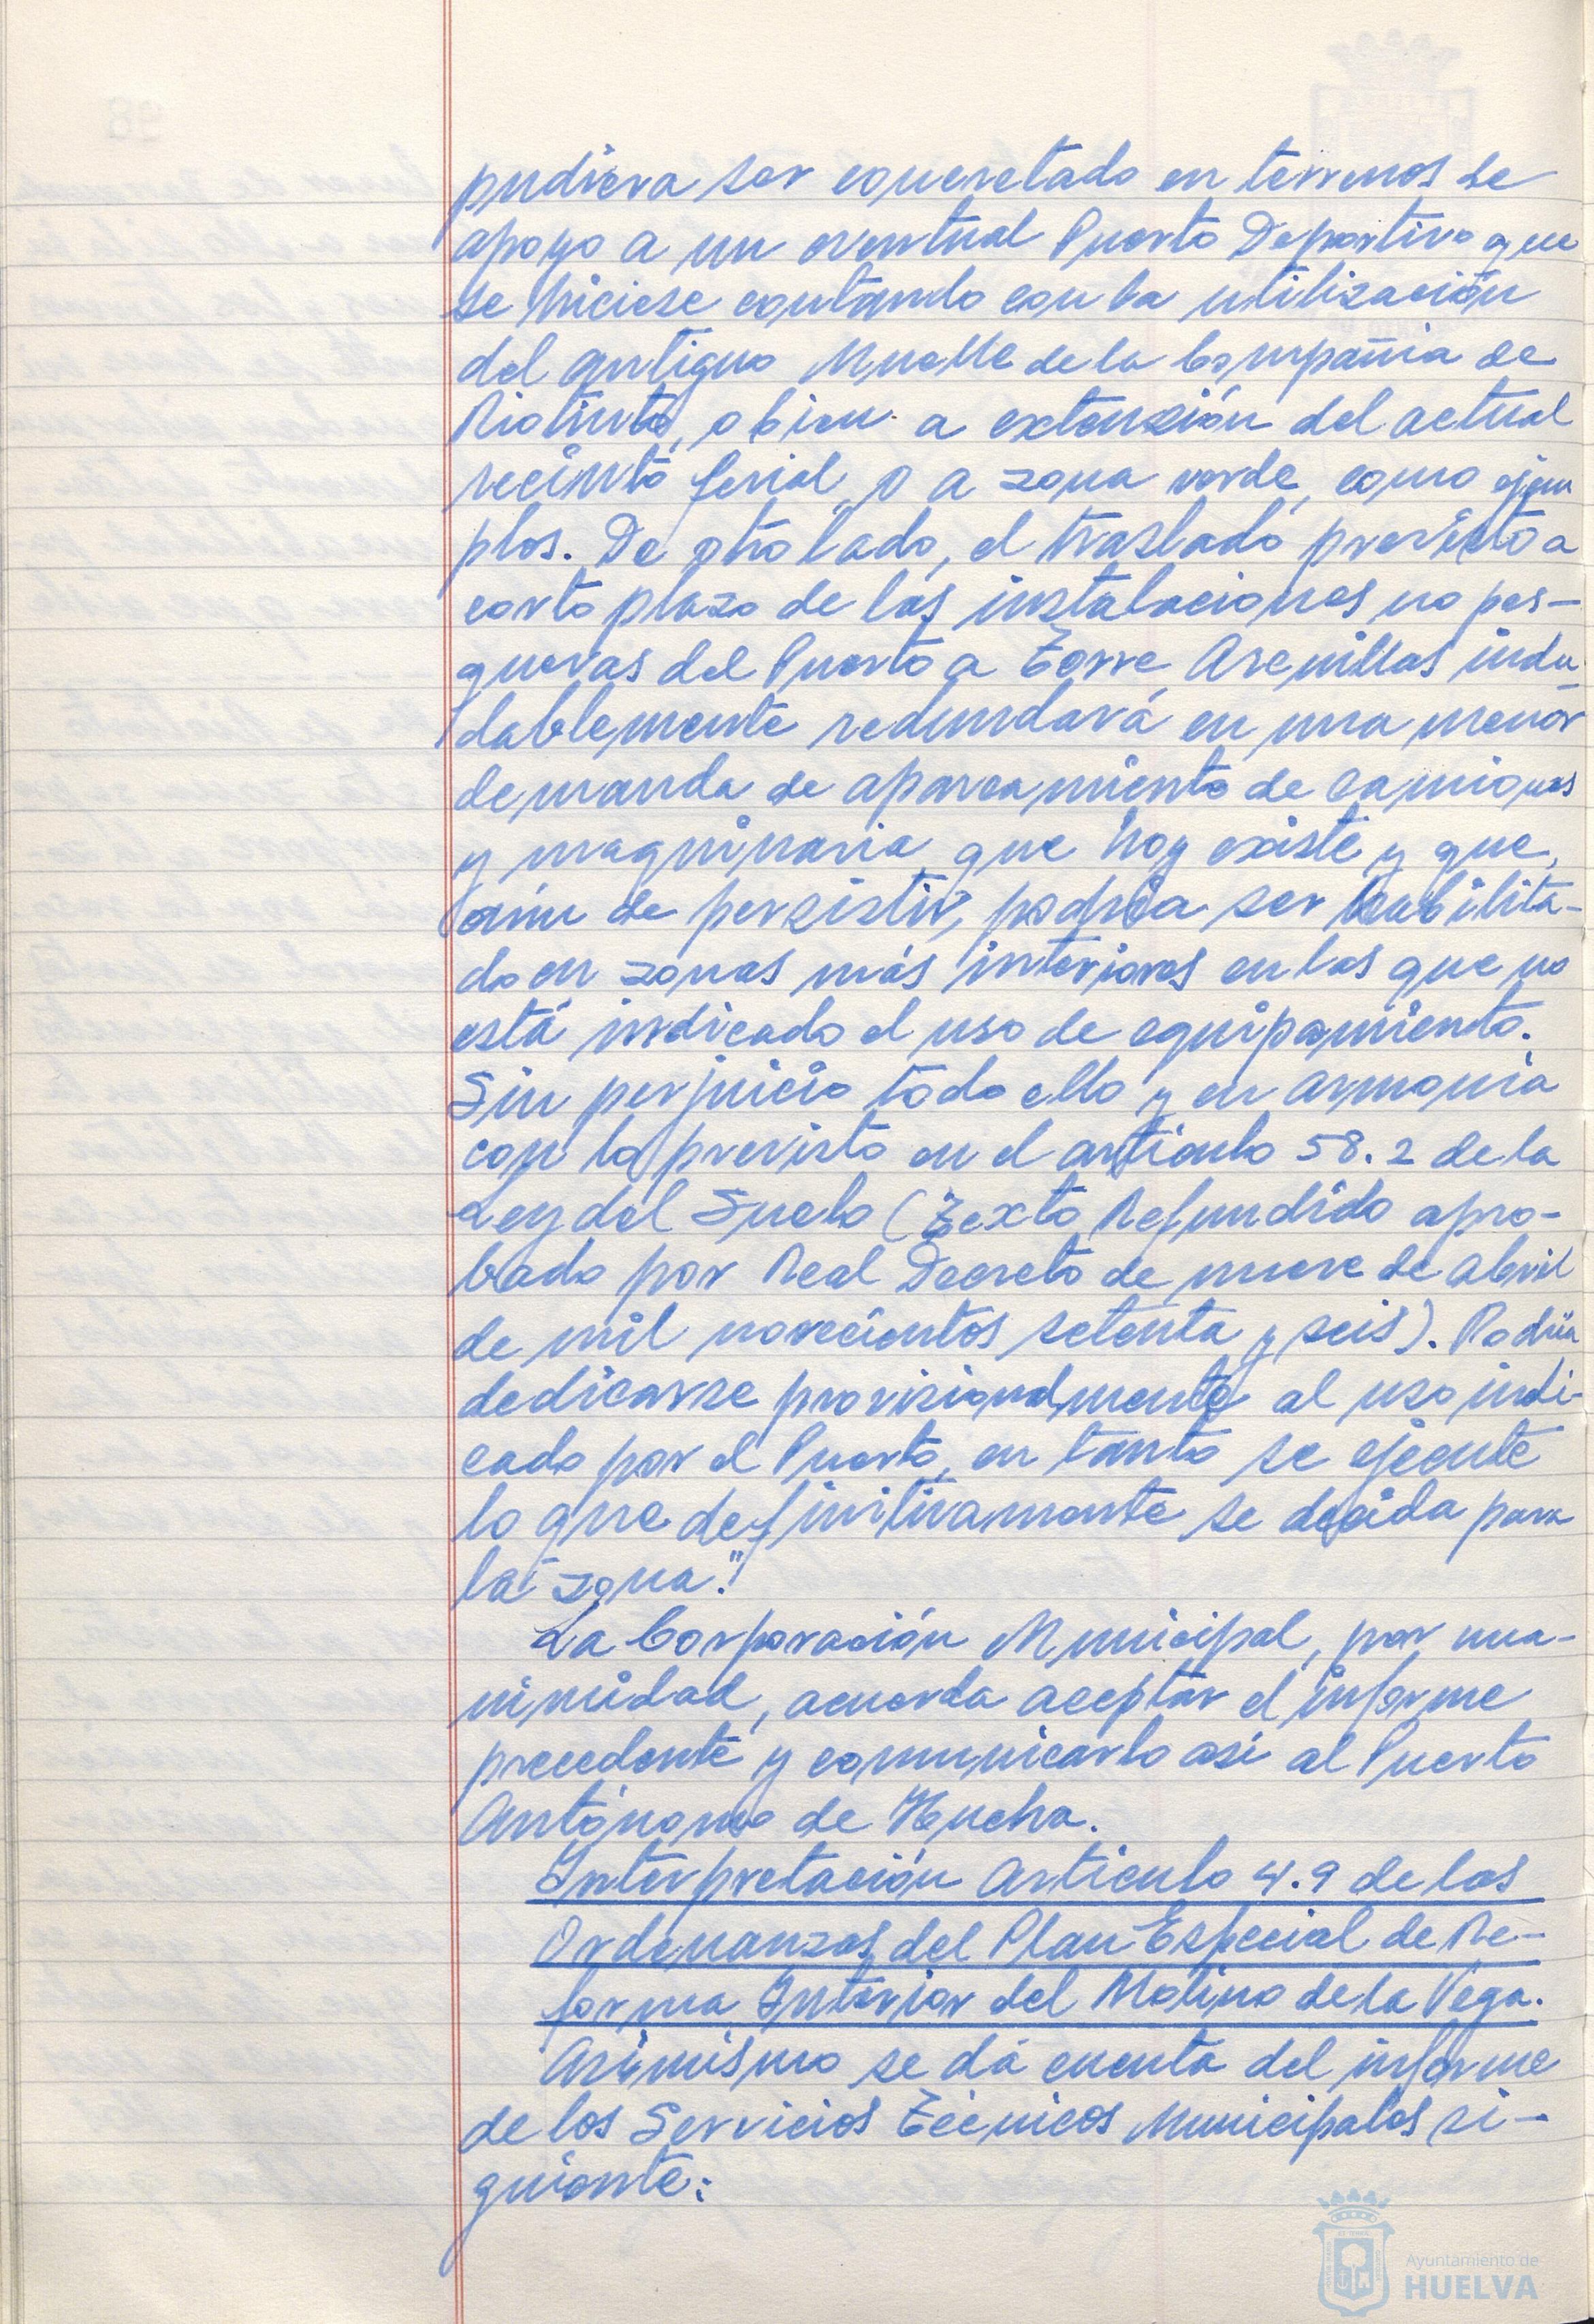 pudiera ser concretado en terrenos de
apoyo a un eventual Puerto Deportivo que
se hiciese contando con la utilización
del antiguo Muelle de la Compañia de
Riotinto, o bien a extensión del actual
recinto ferial, o a zona verde, como ejem
plos. De otro lado, el traslado previsto a
corto plazo de las instalaciones no pes-
queras del Puerto a Torre Arenillas indu
dablemente redundará en una menor
demanda de aparcamiento de camiones
y maquinaria que hoy existe y que,
aún de persistir, podria ser habilita-
do en zonas más interiores en las que no
está indicado el uso de equipamiento.
Sin perjuicio todo ello y en armonia
con lo previsto en el articulo 58.2 de la
Ley del Suelo (Texto Refundido apro-
bado por Real Decreto de nueve de abril
de mil novecientos setenta y seis). Podria
dedicarse provisionalmente al uso indi-
cado por el Puerto, en tanto se ejecute
lo que definitivamente se decida para
la zona."
La Corporación Municipal, por una-
nimidad, acuerda aceptar el informe
precedente y comunicarlo asi al Puerto
Autónomo de Huelva.
Interpretación Articulo 4.9 de las
Ordenanzas del Plan Especial de Re-
forma Interior del Molino de la Vega.
Asimismo se dá cuenta del informe
de los Servicios Técnicos Municipales si-
guiente:
Ayuntamiento de
HUELVA